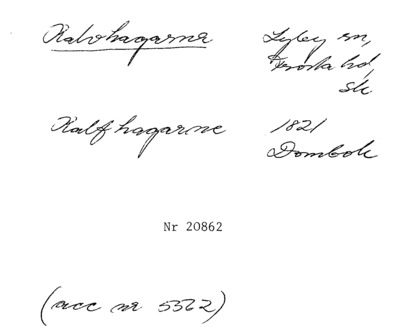 Kalvhagarne Lyby sn,
Frosta hd,
Sk
Kalfhagarne 1821
Dombok
Nr 20862
(acc nr 5562)